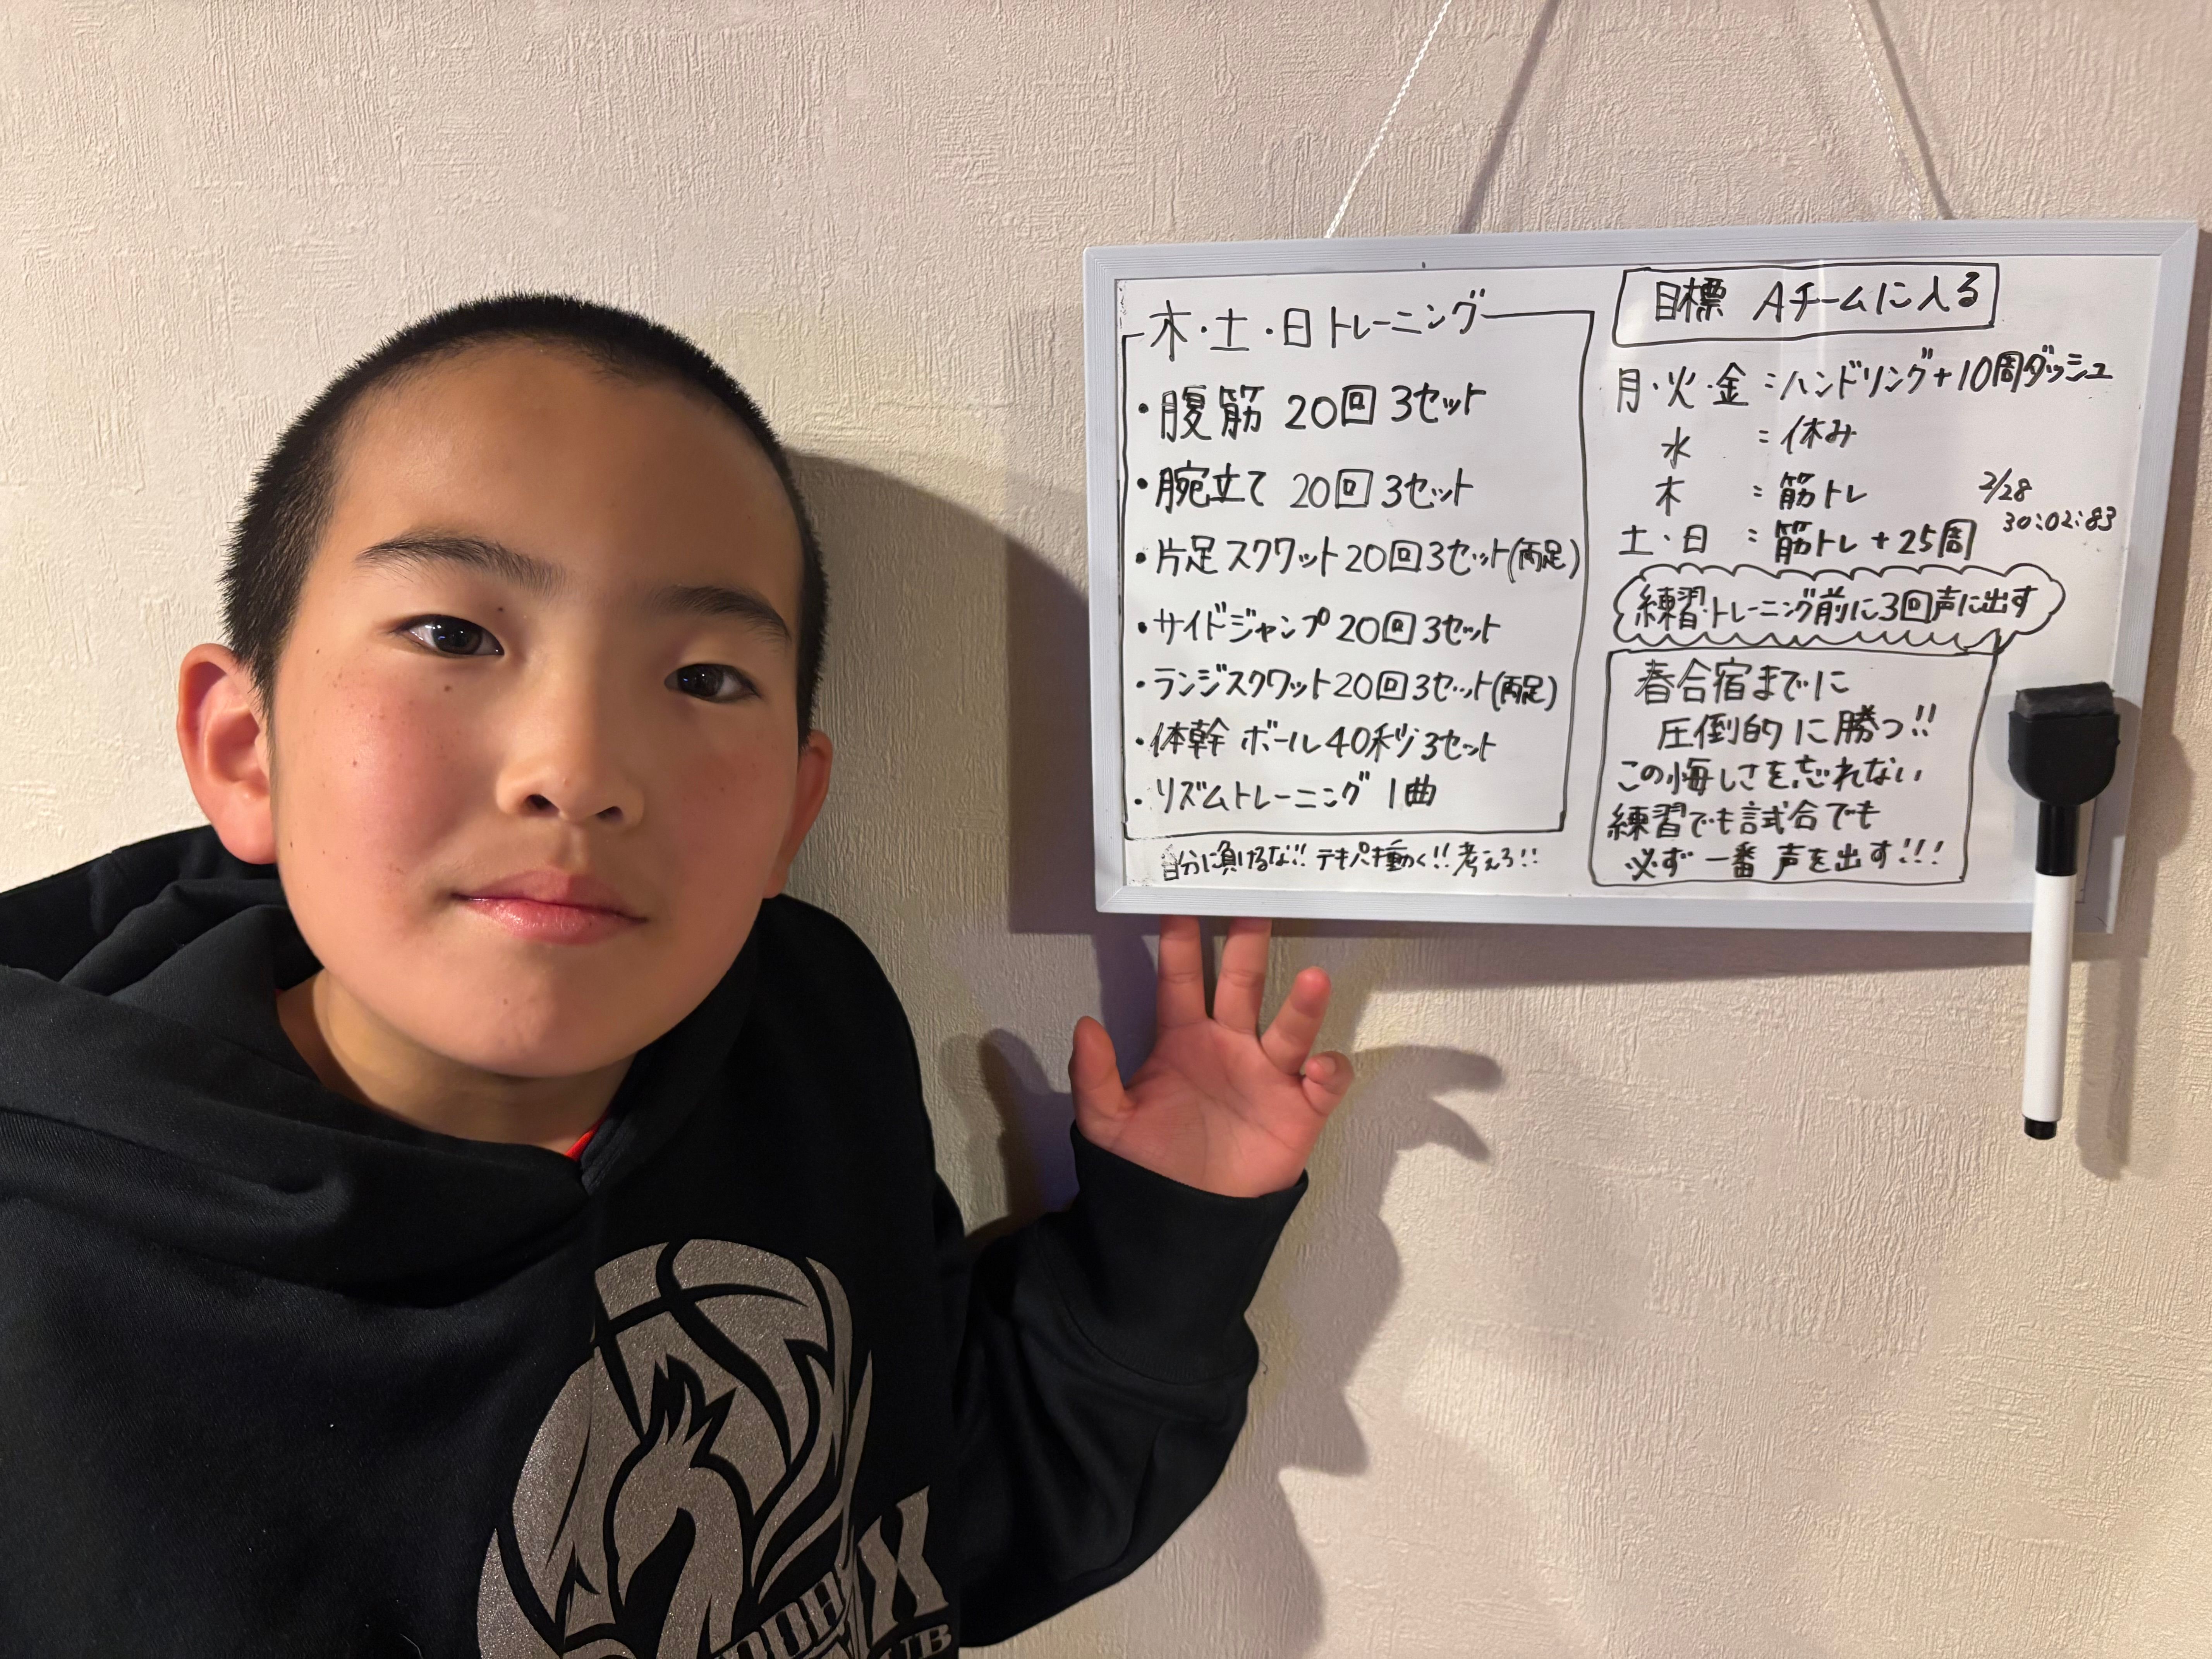 木・土・日トレーニング
・腹筋 20回 3セット
・腕立て 20回 3セット
・片足スクワット20回3セット(両足)
・サイドジャンプ 20回 3セット
・ランジスクワット20回3セット(両足)
・体幹 ボール 40秒 3セット
・リズムトレーニング 1曲
自分に負けるな!! テキパキ動く!! 考えろ!!
目標 Aチームに入る
月・火・金:ハンドリング+10周ダッシュ
水 :休み
木 :筋トレ
土・日 :筋トレ+25周
2/28
30:02:83
練習・トレーニング前に3回声に出す
春合宿までに
圧倒的に勝つ!!
この悔しさを忘れない
練習でも試合でも
必ず一番声を出す!!!